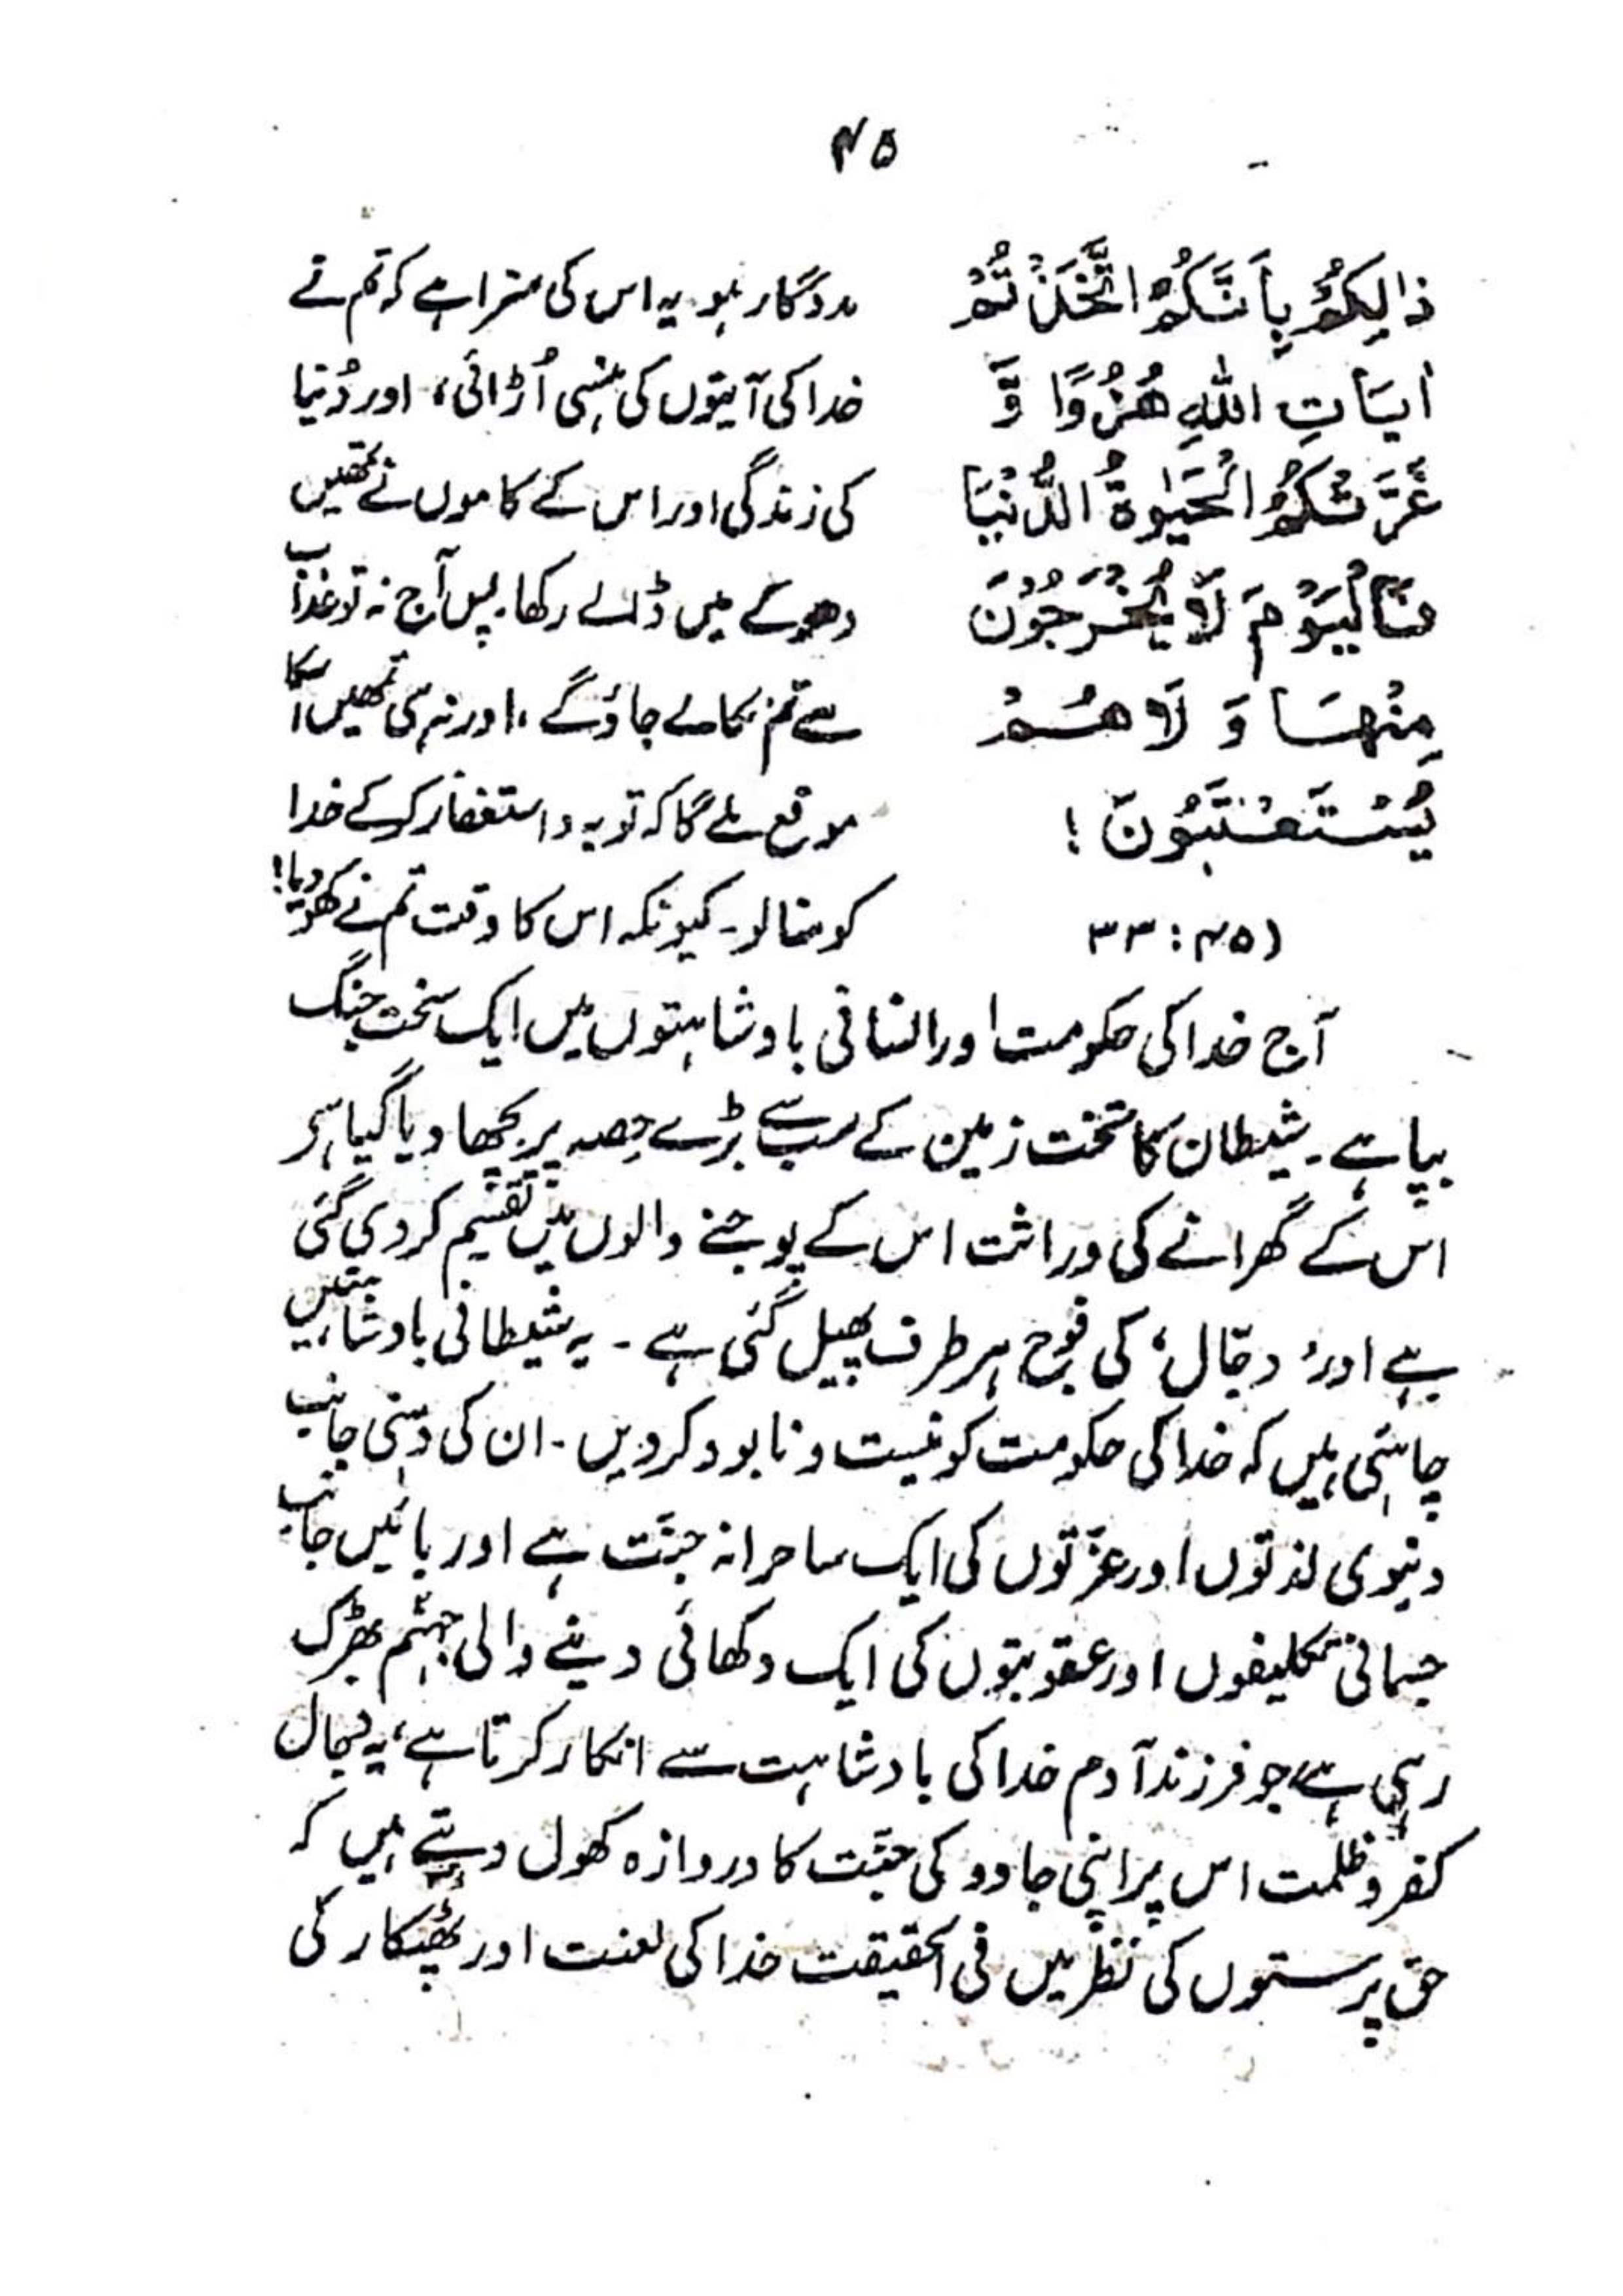 ۴۵
ذٰلِكُمْ بِاَنَّكُمُ اتَّخَذْتُمْ
اٰیَاتِ اللّٰهِ هُزُوًا وَّ
غَرَّتْكُمُ الْحَیٰوةُ الدُّنْیَا
فَالْیَوْمَ لَا یُخْرَجُوْنَ
مِنْهَا وَ لَا هُمْ
یُسْتَعْتَبُوْنَ !
(۴۵ : ۳۳
مددگار ہو یہ اس کی سزا ہے کہ تم نے
خدا کی آیتوں کی ہنسی اُڑائی، اور دُنیا
کی زندگی اور اس کے کاموں نے تمھیں
دھوکے میں ڈالے رکھا۔ پس آج نہ تو عذاب
سے تم نکالے جاؤگے، اور نہ ہی تمھیں اسکا
موقع ملے گا کہ توبہ و استغفار کرکے خدا
کو منالو۔ کیونکہ اس کا وقت تم نے کھو دیا!
آج خدا کی حکومت اور انسانی بادشاہتوں میں ایک سخت جنگ
بپا ہے۔ شیطان کا تخت زمین کے سب سے بڑے حِصہ پر بچھا دیا گیا ہے
اس کے گھرانے کی وراثت اس کے پوجنے والوں میں تقسیم کردی گئی
ہے اور ’دجّال‘ کی فوج ہر طرف پھیل گئی ہے۔ یہ شیطانی بادشاہتیں
چاہتی ہیں کہ خدا کی حکومت کو نیست و نابود کردیں۔ ان کی دہنی جانب
دنیوی لذتوں اور عزّتوں کی ایک ساحرانہ جنّت ہے اور بائیں جانب
جسمانی تکلیفوں اور عقوبتوں کی ایک دکھائی دینے والی جہنّم بھڑک
رہی ہے، جو فرزند آدم خدا کی بادشاہت سے انکار کرتا ہے، یہ دجال
کفر و ظلمت اس پر اپنی جادو کی جنّت کا دروازہ کھول دیتے ہیں کہ
حق پرستوں کی نظر میں فی الحقیقت خدا کی لعنت اور پھٹکار کی